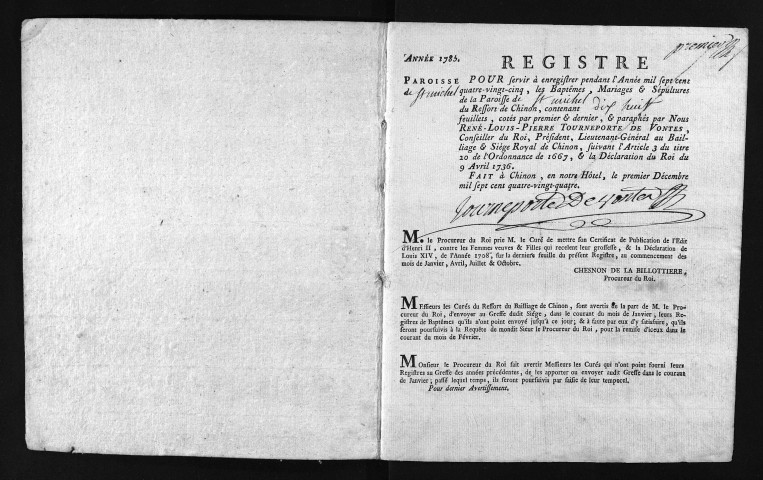 premier
ANNÉE 1785.
REGISTRE
PAROISSE
de St michel
POUR servir à enregistrer pendant l'Année mil sept cent
quatre-vingt-cinq, les Baptêmes, Mariages & Sépultures
de la Paroisse de St michel
du Ressort de Chinon, contenant dix huit
feuillets, cotés par premier & dernier, & paraphés par Nous
RENÉ-LOUIS-PIERRE TOURNEPORTE DE VONTES,
Conseiller du Roi, Président, Lieutenant-Général au Bail-
liage & Siége Royal de Chinon, suivant l'Article 3 du titre
20 de l'Ordonnance de 1667, & la Déclaration du Roi du
9 Avril 1736.
FAIT à Chinon, en notre Hôtel, le premier Décembre
mil sept cent quatre-vingt-quatre.
Tourneporte De Vontes
M. le Procureur du Roi prie M. le Curé de mettre son Certificat de Publication de l'Edit
d'Henri II, contre les Femmes veuves & Filles qui recelent leur grossesse, & la Déclaration de
Louis XIV, de l'Année 1708, sur la derniere feuille du présent Registre, au commencement des
mois de Janvier, Avril, Juillet & Octobre.
CHESNON DE LA BILLOTTIERE,
Procureur du Roi.
MEssieurs les Curés du Ressort du Bailliage de Chinon, sont avertis de la part de M. le Pro-
cureur du Roi, d'envoyer au Greffe dudit Siége, dans le courant du mois de Janvier, leurs Re-
gistres de Baptêmes qu'ils n'ont point envoyé jusqu'à ce jour; & à faute par eux d'y satisfaire, qu'ils
seront poursuivis à la Requête de mondit Sieur le Procureur du Roi, pour la remise d'iceux dans le
courant du mois de Février.
MOnsieur le Procureur du Roi fait avertir Messieurs les Curés qui n'ont point fourni leurs
Registres au Greffe des années précédentes, de les apporter ou envoyer audit Greffe dans le courant
de Janvier; passé lequel temps, ils seront poursuivis par saisie de leur temporel.
Pour dernier Avertissement.